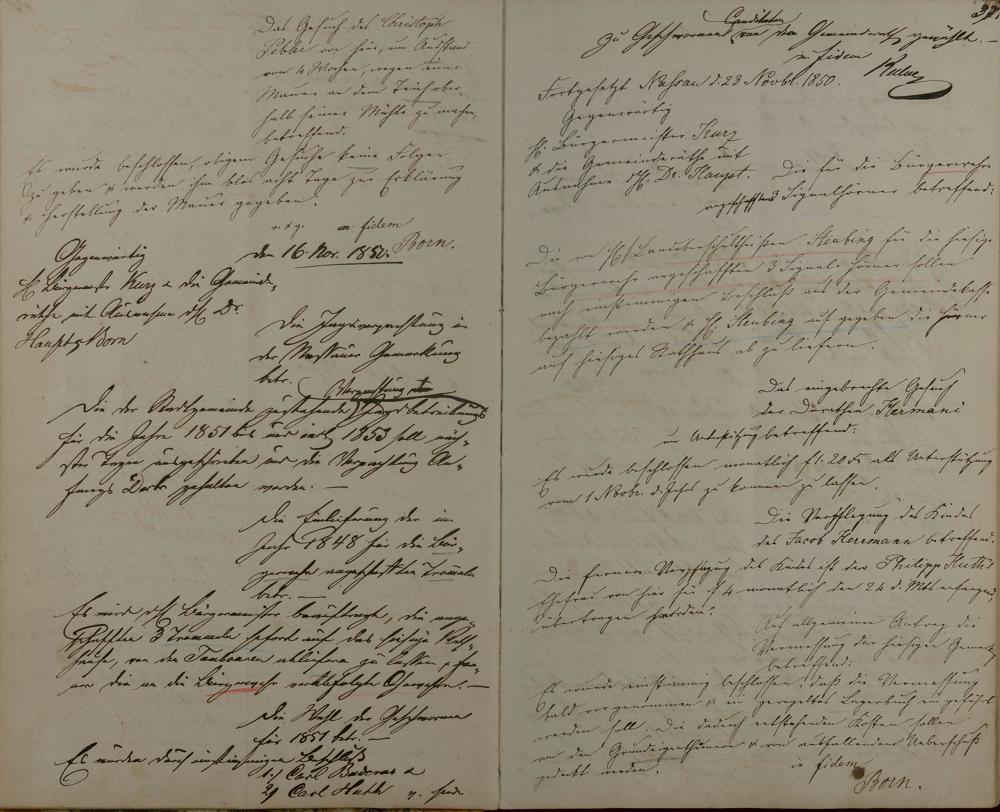 Das Gesuch des Christoph
von hier, um Ausstand
von 4 Wochen, wegen einer
Mauer an dem Teich ober-
halb seiner Mühle zu machen,
betreffend.
Es wurde beschlossen, obigem Gesuche keine Folge
zu geben & werden ihm blos acht Tage zur Erklärung
& Herstellung der Mauer gegeben.
in fidem
Born.
den 16. Nov. 1850.
Gegenwärtig
H. Bürgermstr Kurz & die Gemeinde-
räthe mit Ausnahme des H. Dr.
Haupt & Born
Die Jagdverpachtung in
der Nassauer Gemarkung
betr.
Verpachtung
Die der Stadtgemeinde zustehende Jagdbetreibung
für die Jahre 1851 bis und incl. 1853 soll näch-
ster Tagen ausgeschrieben und die Verpachtung An-
fangs Decbr gehalten werden. —
Die Einlieferung der im
Jahr 1848 für die Bür-
gerwehr angeschafften Trommeln
betr. —
Es wird H. Bürgermeister beauftragt, die ange-
schafften 3 Trommeln sofort auf das hiesige Rath-
haus, von den Tambouren abliefern zu lassen, fer-
ner die an die Bürgerwehr verabfolgte —
Die Wahl der Geschwornen
für 1851 betr. —
Es wurden durch einstimmigen Beschluß
1.) Carl &
2) Carl
Candidaten
zu Geschwornen von dem Gemeinderath gewählt. —
in fidem
Fortgesetzt Nassau d. 23 Novbr. 1850.
Gegenwärtig
H. Bürgermeister Kurz
& die Gemeinderäthe mit
Ausnahme d. H. Dr. Haupt.
Die für die Bürgerwehr
angeschafften 3 Signalhörner betreffend:
Die von H. Landoberschultheißen Steubing für die hiesige
Bürgerwehr angeschafften 3 Signalhörner sollen
nach einstimmigem Beschluß aus der Gemeindekasse
bezahlt werden & H. Steubing auf gegeben die Hörner
auf hiesiges Rathhaus ab zu liefern.
Das eingebrachte Gesuch
der Dorothea Hermani
um Unterstützung betreffend:
Es wurde beschlossen monatlich f 1. 20 als Unterstützung
vom 1 Novbr. d. Jahrs zu kommen zu lassen.
Die Verpflegung des Kindes
des Jacob Herrmann betreffend.
Die fernere Verpflegung des Kindes ist der Philipp
Ehefrau von hier zu f 4 monatlich den 24 d. Mts anfangend,
übertragen worden.
Auf allgemeinen Antrag die
Vermessung der hiesigen
betreffend:
Es wurde einstimmig beschlossen, daß die Vermessung
bald vorgenommen & ein geregeltes Lagerbuch eingeführt
werden soll. Die dadurch entstehenden Kosten sollen
von den Grundeigenthümern & von ausfallendem Ueberschuß
gedeckt werden.
in fidem
Born.